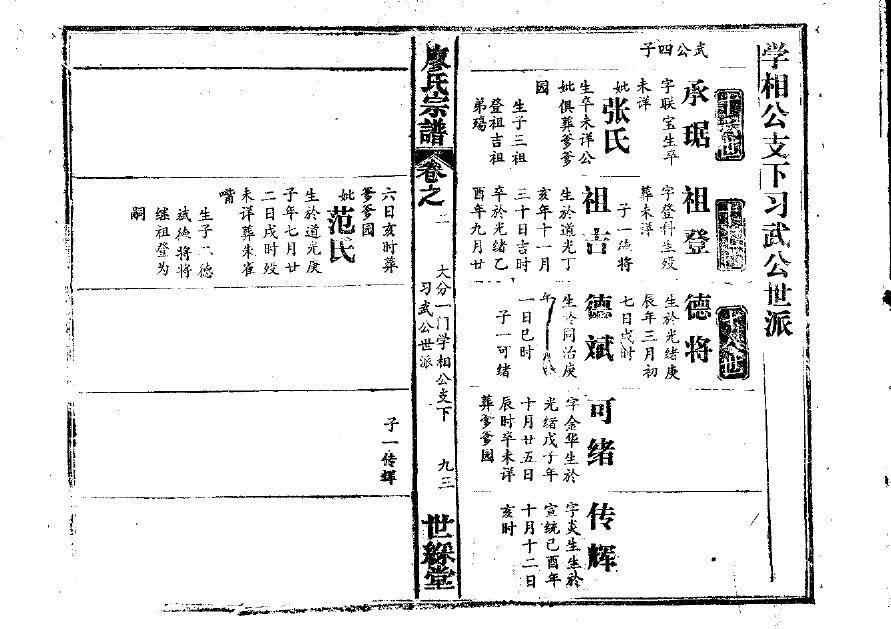 学相公支下习武公世派
武公四子
承琚
字联宝生卒
未详
妣张氏
生卒未详公
妣俱葬爹爹
园
生子三祖
登祖吉祖
弟殇
祖登
字登科生殁
葬未详
子一德将
祖吉
生於道光丁
亥年十一月
三十日吉时
卒於光绪乙
酉年九月廿
十八世
德将
生於光绪庚
辰年三月初
七日戌时
德斌
生於同治庚
午
一日巳时
子一可绪
可绪
字金华生於
光绪戊子年
十月廿五日
辰时卒未详
葬爹爹园
传辉
字炎生生於
宣统己酉年
十月十二日
亥时
廖氏宗谱
卷之二
大分一门学相公支下
习武公世派
九三
世綵堂
六日亥时葬
爹爹园
妣范氏
生於道光庚
子年七月廿
二日戌时殁
未详葬朱雀
嘴
生子二德
斌德将将
继祖登为
嗣
子一传辉